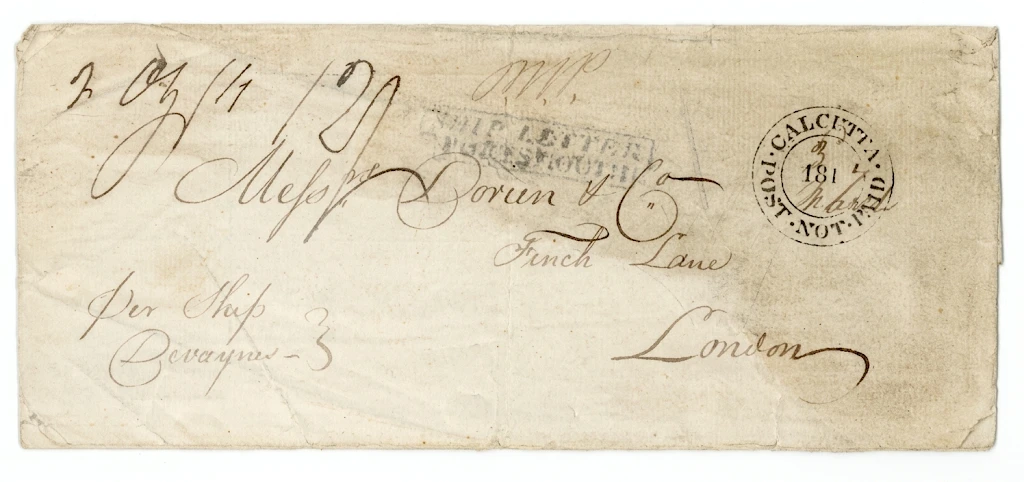 2 Oz /4
SHIP LETTER
PORTSMOUTH
CALCUTTA
POST NOT PAID
181
Messrs. Dorien & Co.
Finch Lane
London
per Ship
Devaynes